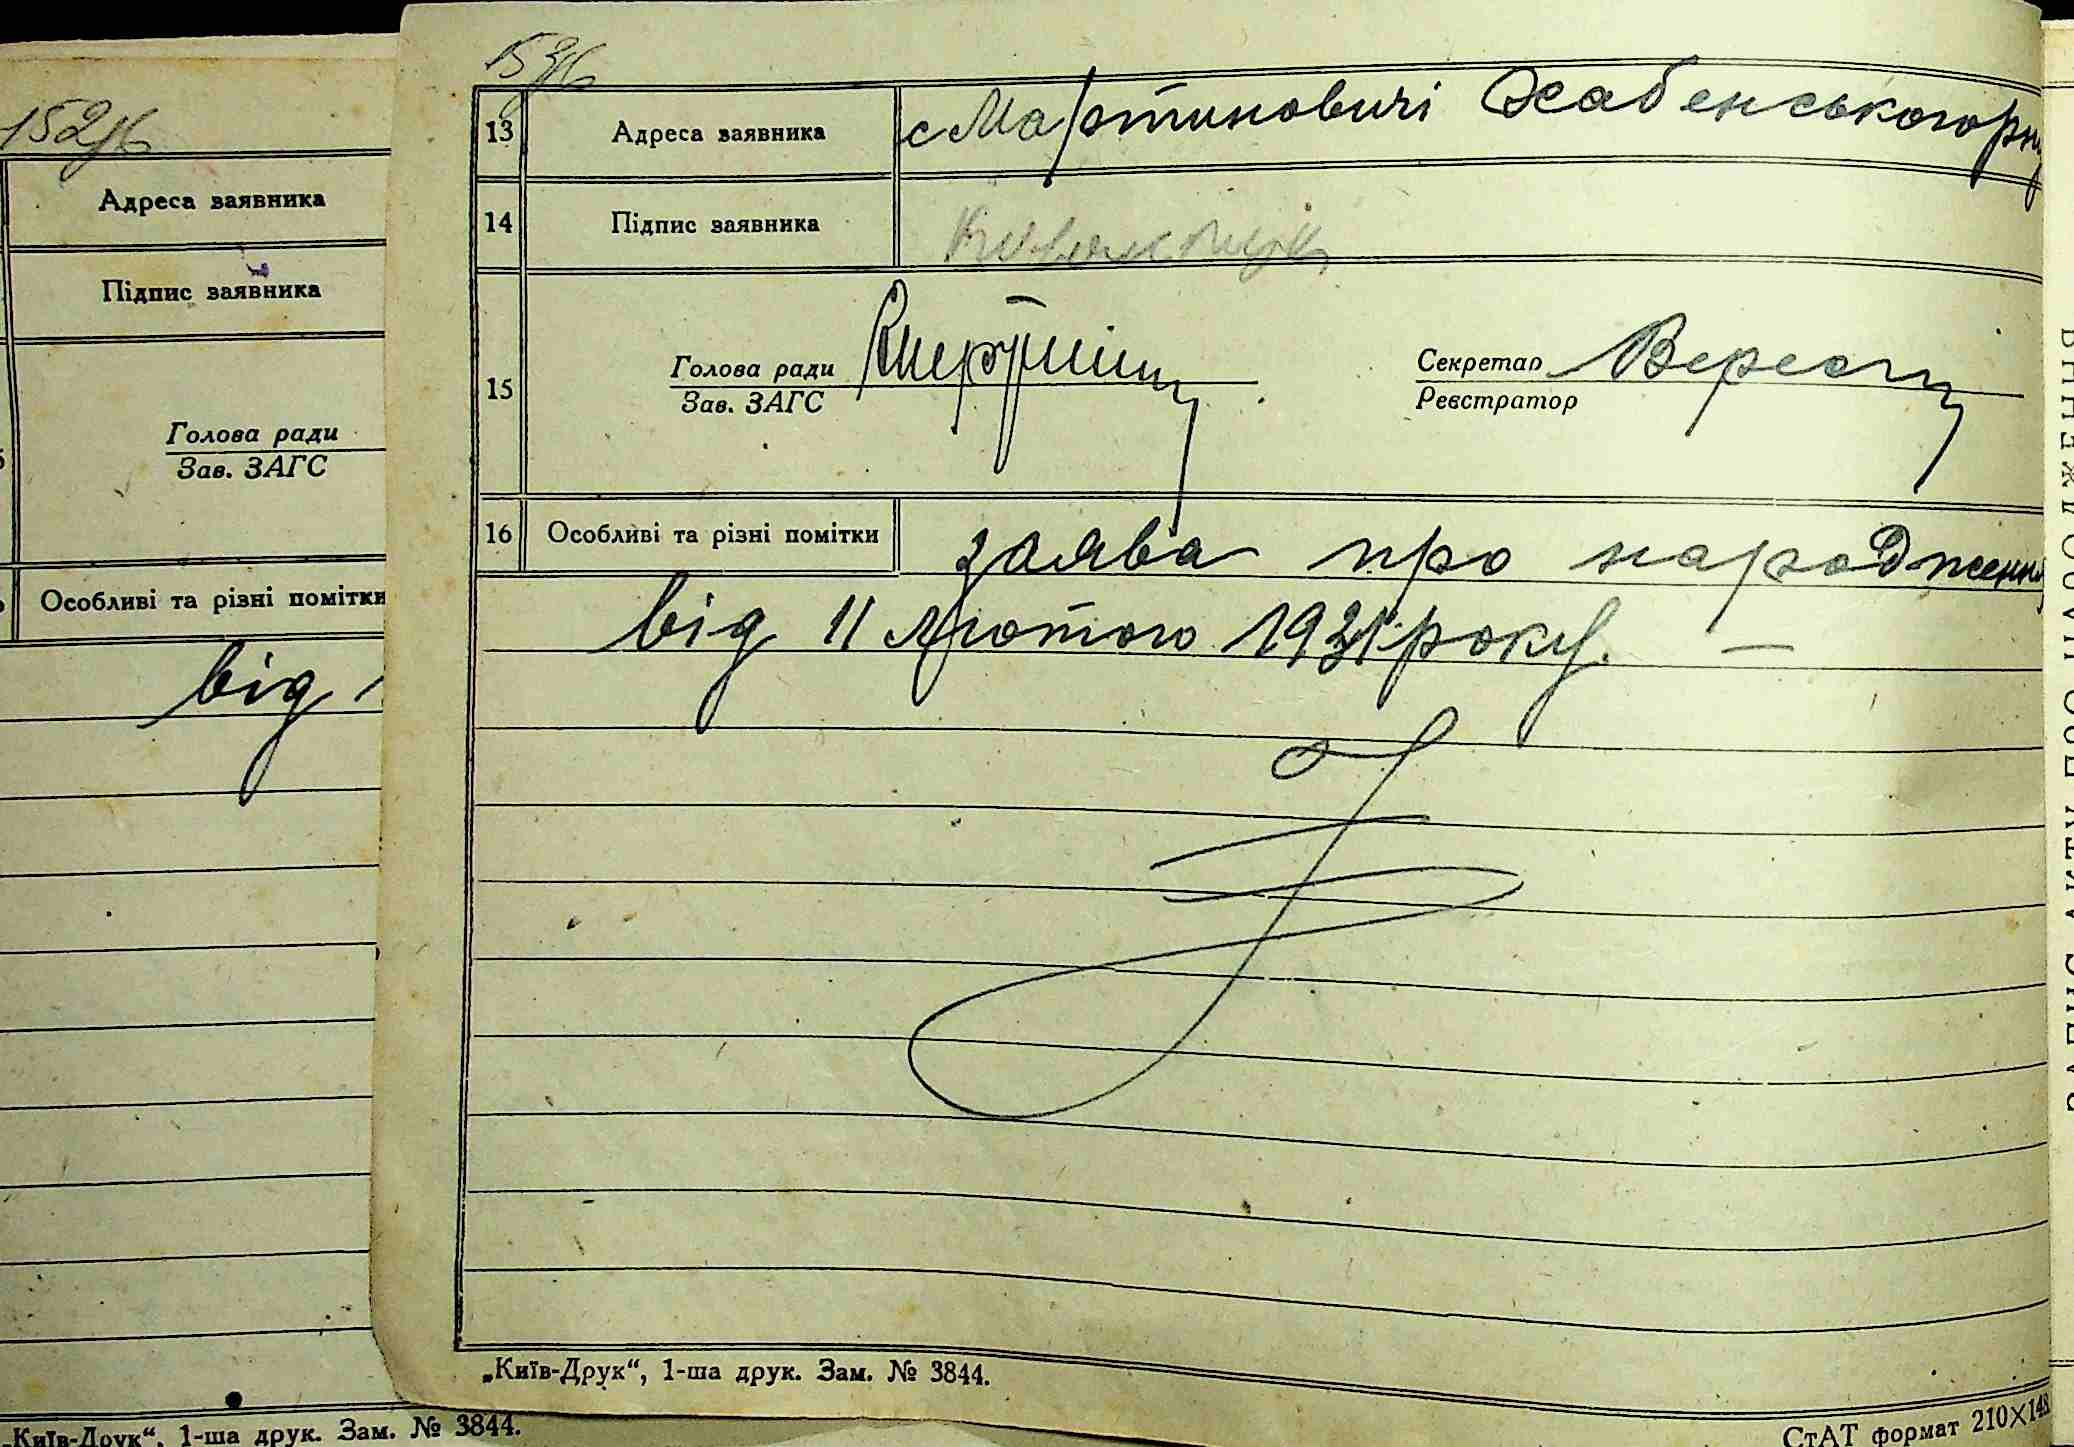 152зв
Адреса заявника
Підпис заявника
Голова ради
Зав. ЗАГС
Особливі та різні помітки
від
„Київ-Друк“, 1-ша друк. Зам. № 3844.
153зв
13 Адреса заявника с Мартиновичі Хабенського рну
14 Підпис заявника
15 Голова ради Секретар
Зав. ЗАГС Реєстратор
16 Особливі та різні помітки заява про народження
від 11 лютого 1931 року. —
„Київ-Друк“, 1-ша друк. Зам. № 3844.
СтАТ формат 210×148